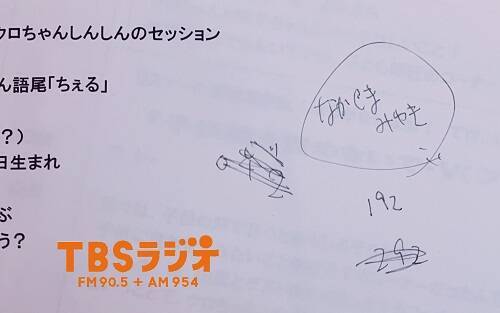 クロちゃんしんしんのセッション
ん語尾「ちぇる」
？）
日生まれ
ぶ
う？
なかじま
みゆき
192
292
TBSラジオ
FM 90.5 + AM 954